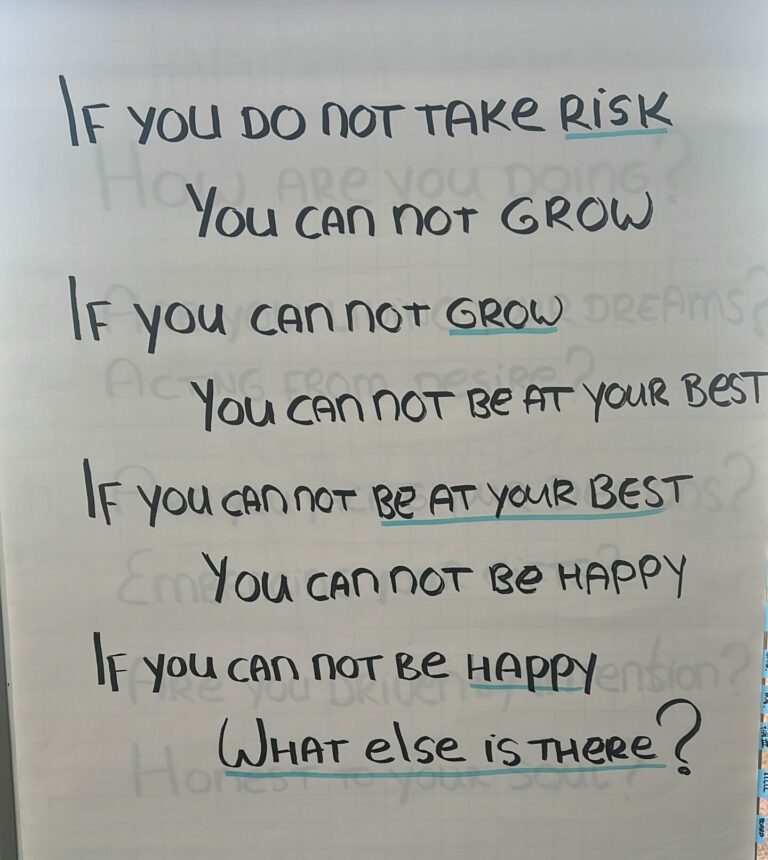 IF YOU DO NOT TAKE RISK
YOU CAN NOT GROW
IF YOU CAN NOT GROW
YOU CAN NOT BE AT YOUR BEST
IF YOU CAN NOT BE AT YOUR BEST
YOU CAN NOT BE HAPPY
IF YOU CAN NOT BE HAPPY
WHAT else is THERE?